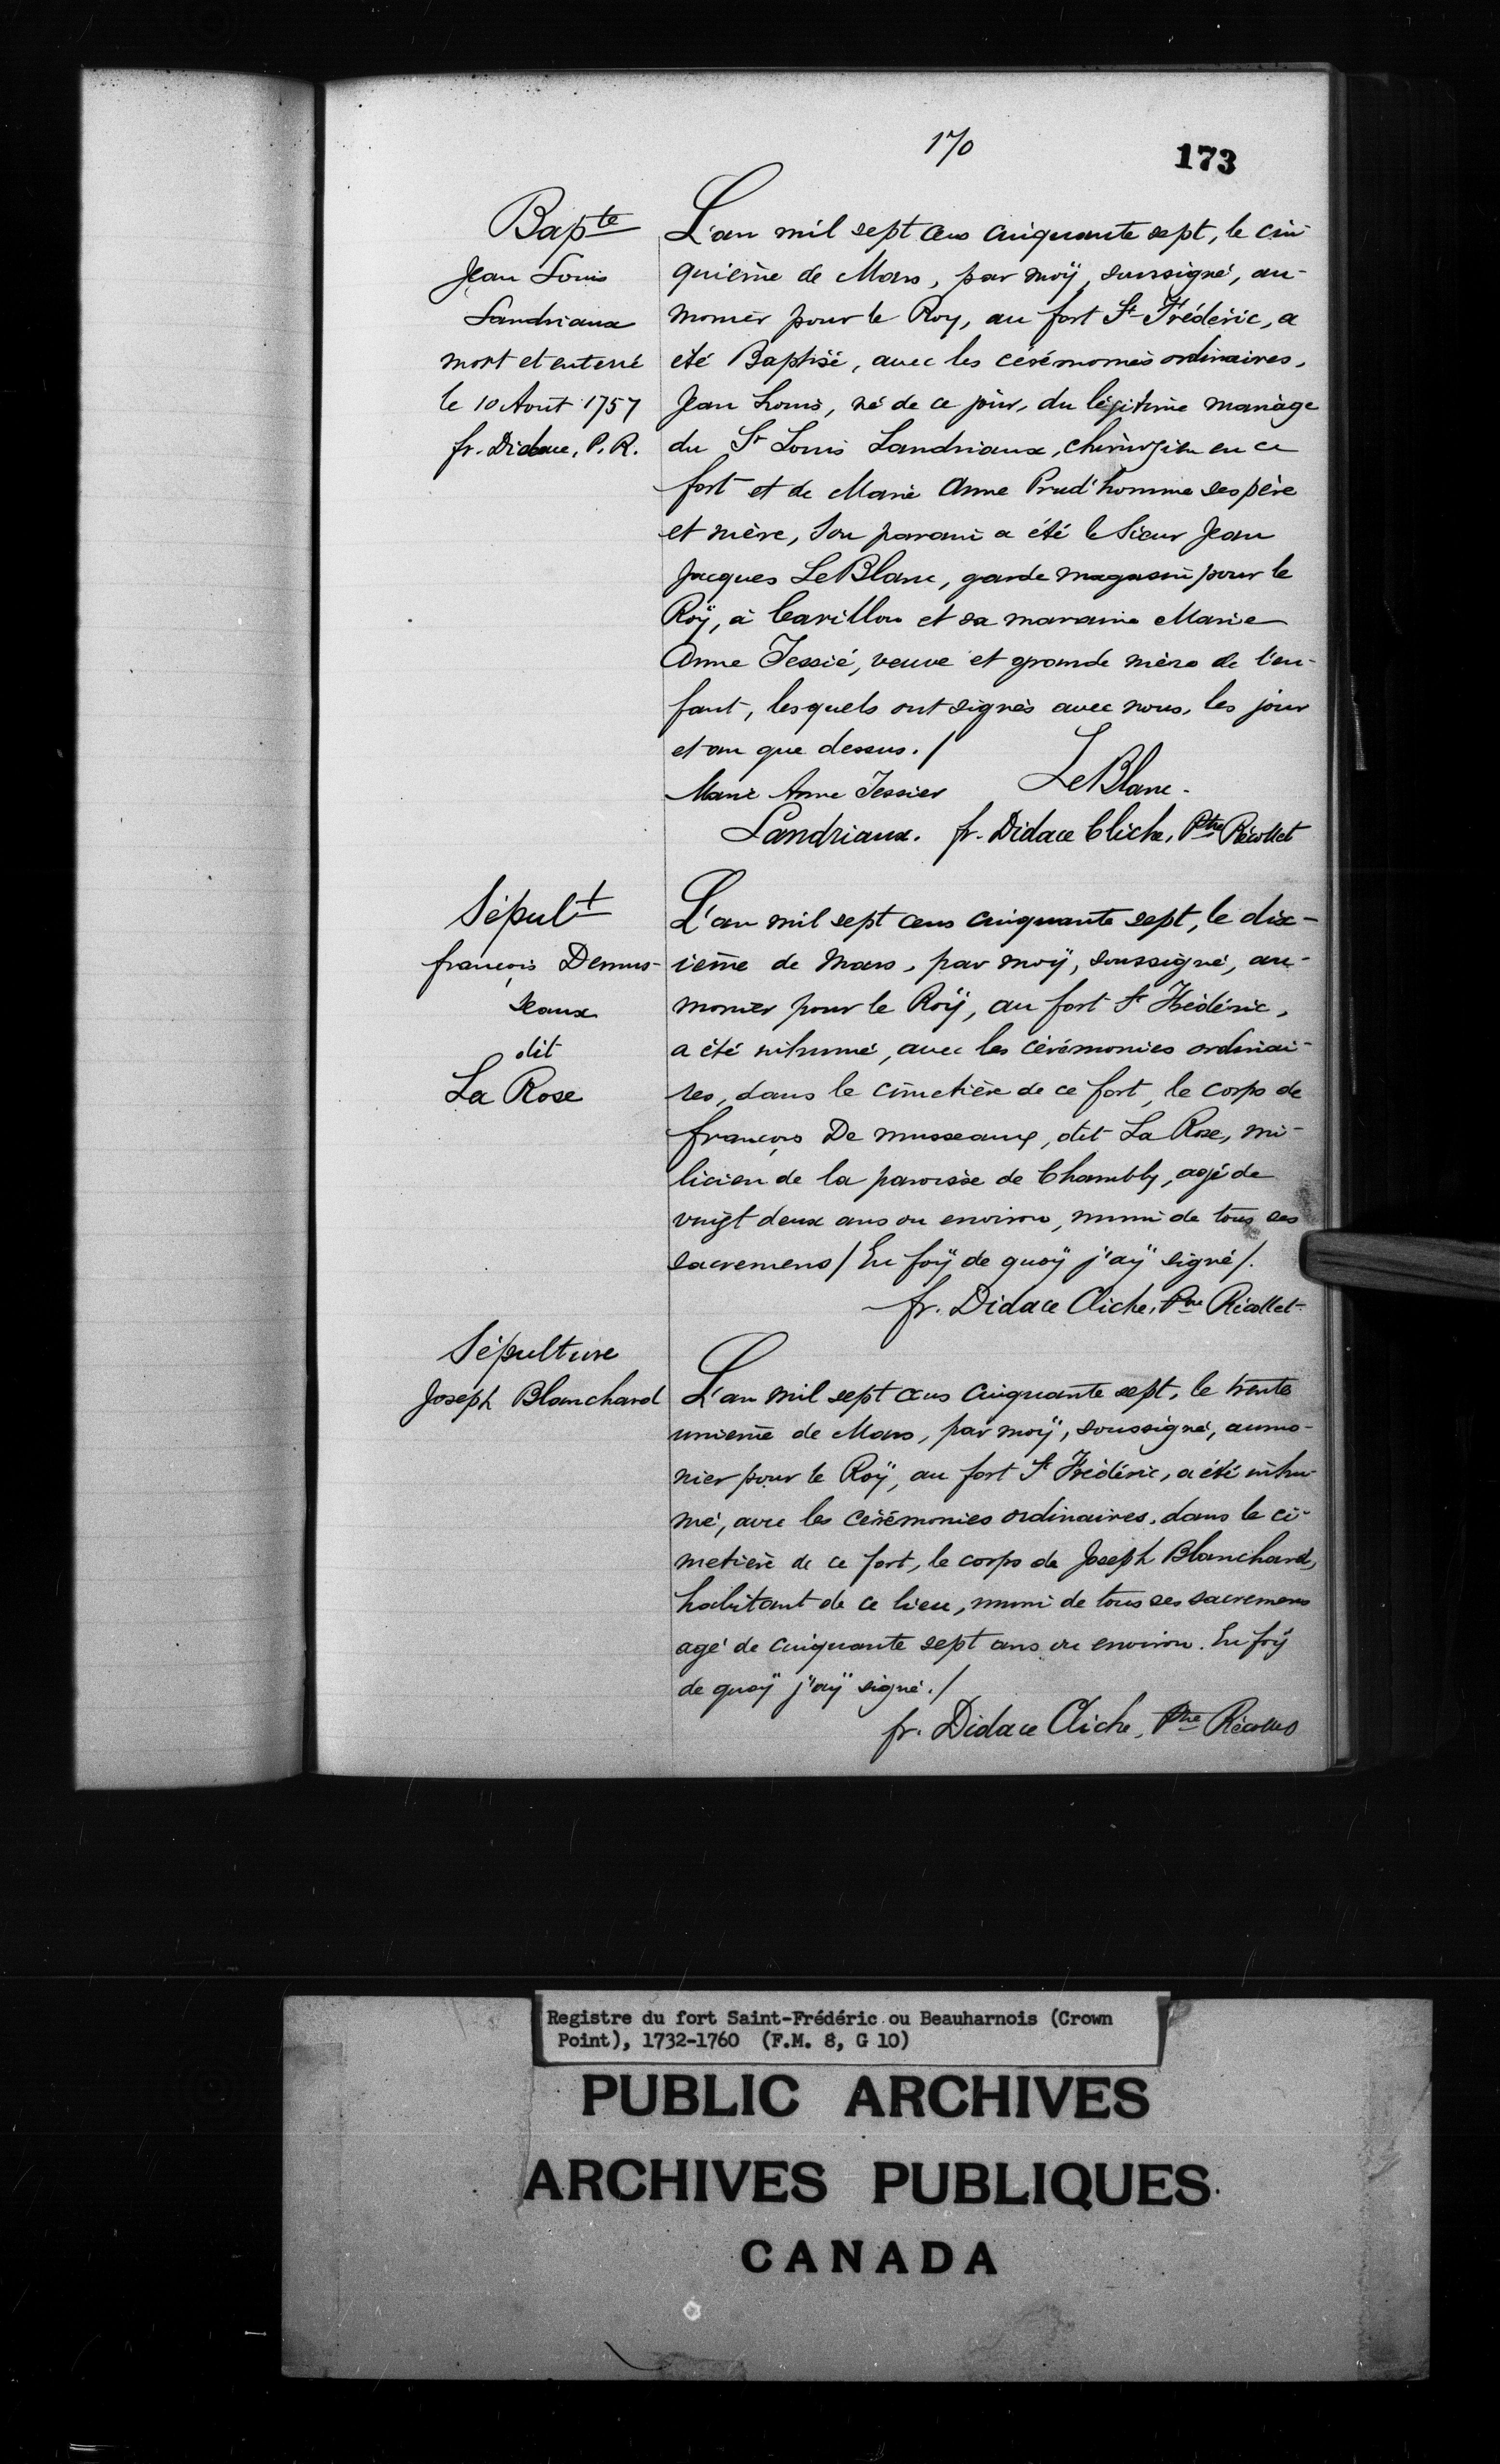 170
173
Bapte
Jean Louis
Landriaux
mort et enterré
le 10 Aout 1757
fr. Didace, P. R.
L'an mil sept cens cinquante sept, le cin-
quième de Mars, par moÿ, soussigné, au-
monier pour le Roy, au fort St Frédéric, a
été Baptisé, avec les cérémonies ordinaires,
Jean Louis, né de ce jour, du légitime mariage
du Sr Louis Landriaux, chirurgien en ce
fort et de Marie Anne Prud'homme ses père
et mère, Son parain a été le Sieur Jean
Jacques LeBlanc, garde magasin pour le
Roÿ, à Carillon et sa maraine Marie
Anne Tessié, veuve et grande mère de l'en-
fant, lesquels ont signés avec nous, les jour
et an que dessus./
Marie Anne Tessier LeBlanc.
Landriaux. fr. Didace Cliche, Ptre Récollet
Sépult
françois Demus-
seaux
dit
La Rose
L'an mil sept cens cinquante sept, le dix-
ième de Mars, par moÿ, soussigné, au-
monier pour le Roÿ, au fort St Frédéric,
a été inhumé, avec les cérémonies ordinai-
res, dans le cimetière de ce fort, le corps de
françois De musseaux, dit La Rose, mi-
licien de la paroisse de Chambly, agé de
vingt deux ans ou environ, muni de tous ses
sacremens/ En foÿ de quoÿ j'aÿ signé/.
fr. Didace Cliche, Ptre Récollet
Sépulture
Joseph Blanchard
L'an mil sept cens cinquante sept, le trente
unieme de Mars, par moÿ, soussigné, aumo-
nier pour le Roÿ, au fort St Frédéric, a été inhu-
mé, avec les cérémonies ordinaires, dans le ci-
metière de ce fort, le corps de Joseph Blanchard,
habitant de ce lieu, muni de tous ses sacremens
agé de cinquante sept ans ou environ. En foÿ
de quoÿ j'aÿ signé./
fr. Didace Cliche, Ptre Récollet
Registre du fort Saint-Frédéric ou Beauharnois (Crown
Point), 1732-1760 (F.M. 8, G 10)
PUBLIC ARCHIVES
ARCHIVES PUBLIQUES
CANADA